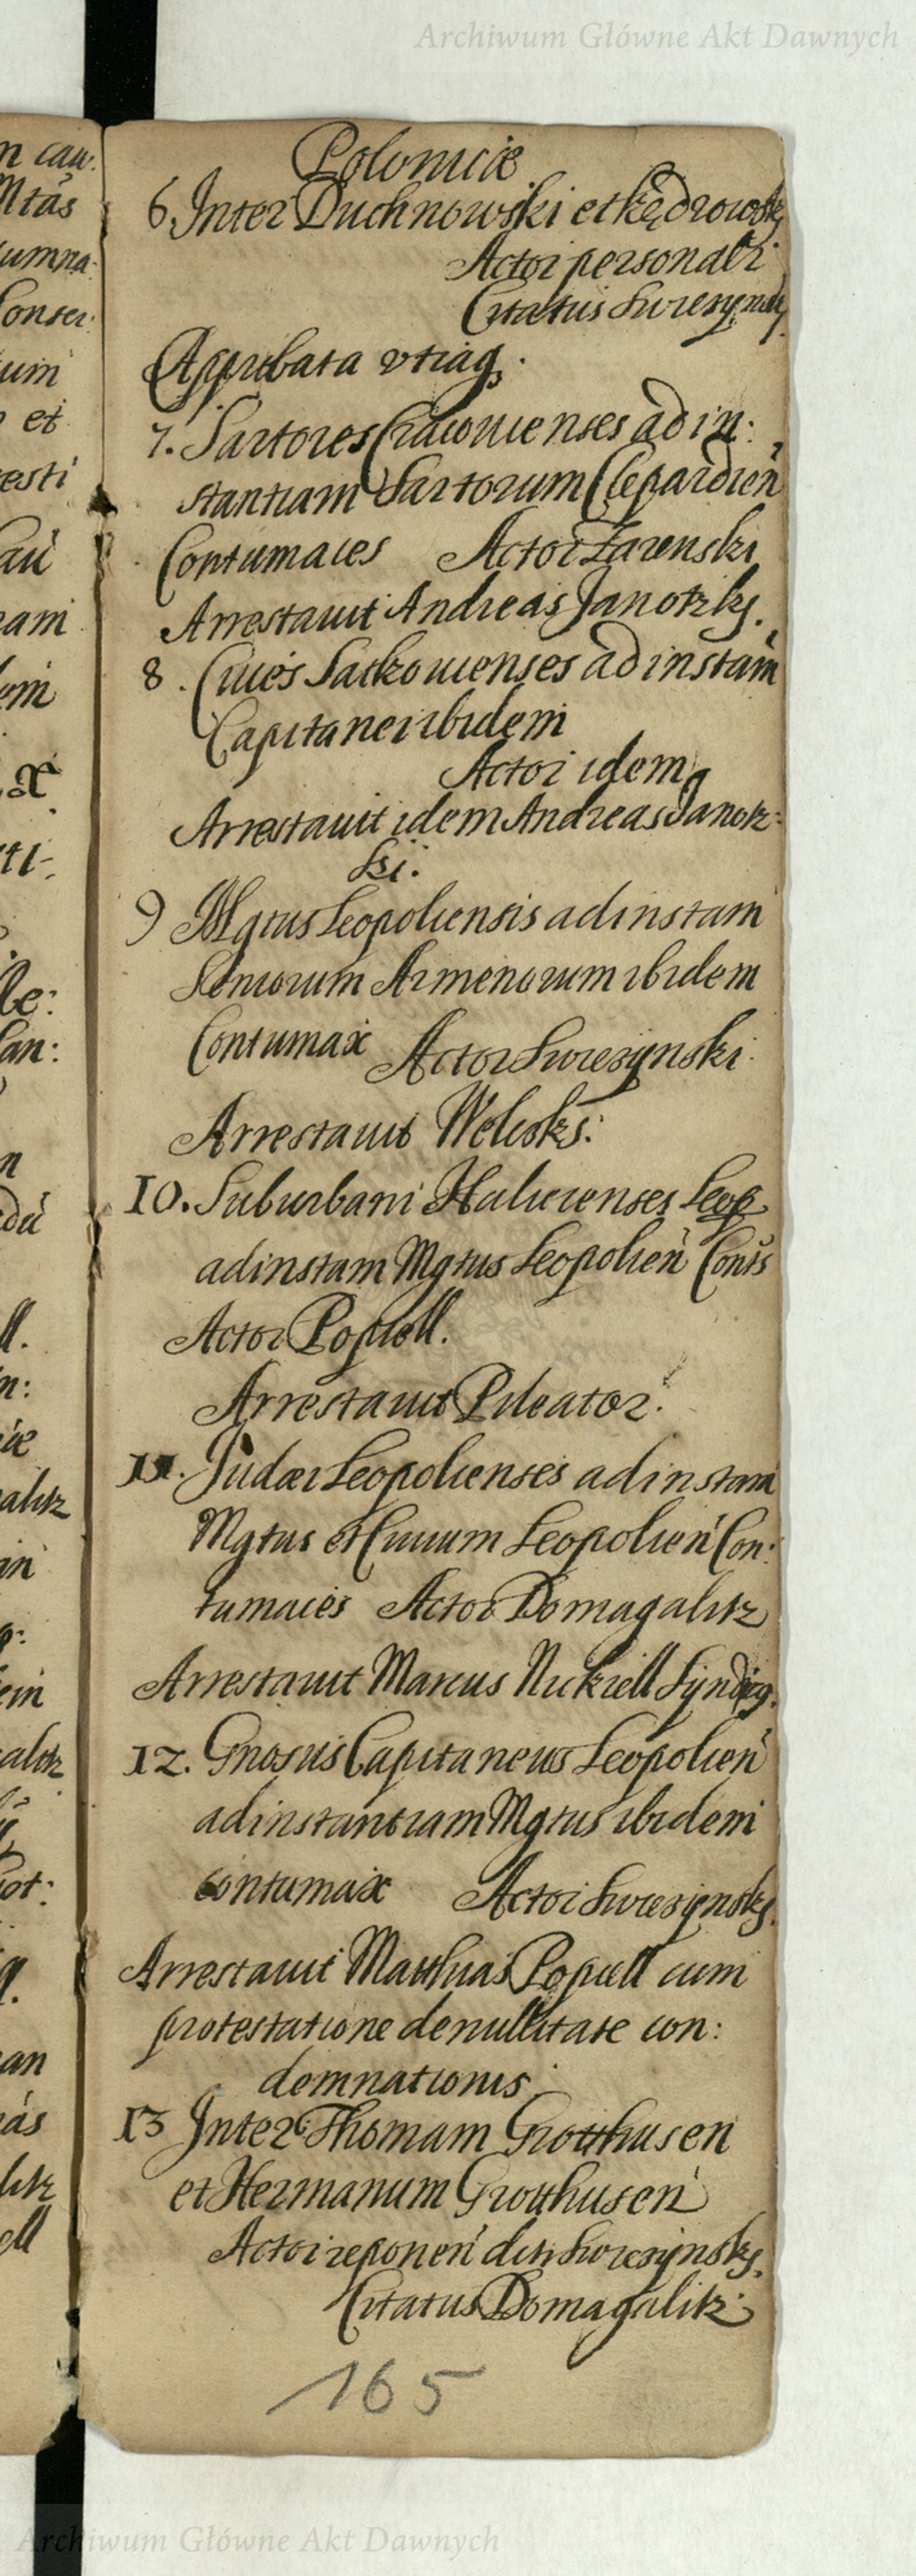 Archiwum Główne Akt Dawnych
Polonicae
6. Inter Duchnowski et Kędrowsky
Actor personalr
Citatus Swiesynsky
Approbata vtraq.
7. Sartores Cracouienses ad in:
stantiam Sartorum Clepardien
Contumaces Actor Zarenski
Arrestauit Andreas Janotzky.
8. Ciues Satkouienses ad instam
Capitanei ibidem
Actor idem
Arrestauit idem Andreas Janotz:
ki.
9 Mgtus Leopoliensis ad instam
Seniorum Armenorum ibidem
Contumax Actor Swiesynski
Arrestauit
10. Suburbani Halicienses Leop
ad instam Mgtus Leopolien Conts
Actor Popiell.
Arrestauit Pileator.
11. Judaei Leopolienses ad instam
Mgtus et Ciuium Leopolien Con:
tumaces Actor Domagalitz
Arrestauit Marcus Nickiell Syndicg.
12. Gnosus Capitaneus Leopolien
ad instantiam Mgtus ibidem
contumax Actor Swiesynsky.
Arrestauit Matthias Popiell cum
protestatione de nullitate con:
demnationis
13 Inter Thomam Grotthusen
et Hermanum Grotthusen
Actor reponen Swiesynsky.
Citatus Domagalitz
165
Archiwum Główne Akt Dawnych